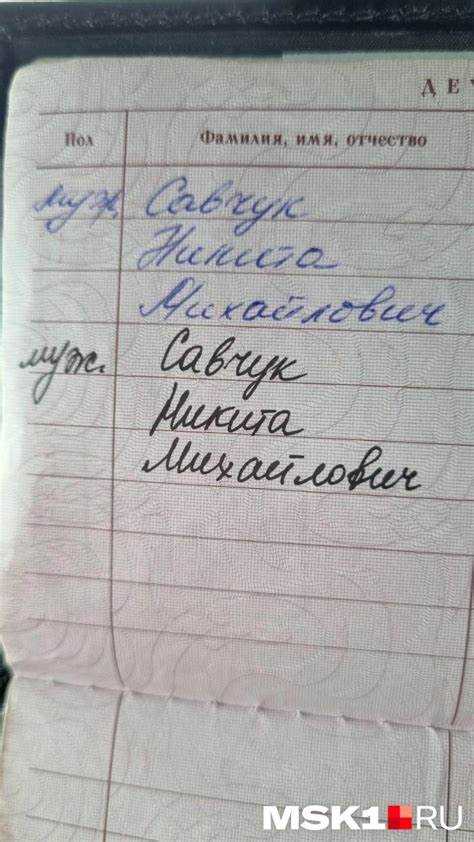 ДЕТ
Пол Фамилия, имя, отчество
муж Савчук
Никита
Михайлович
муж. Савчук
Никита
Михайлович
MSK1.RU